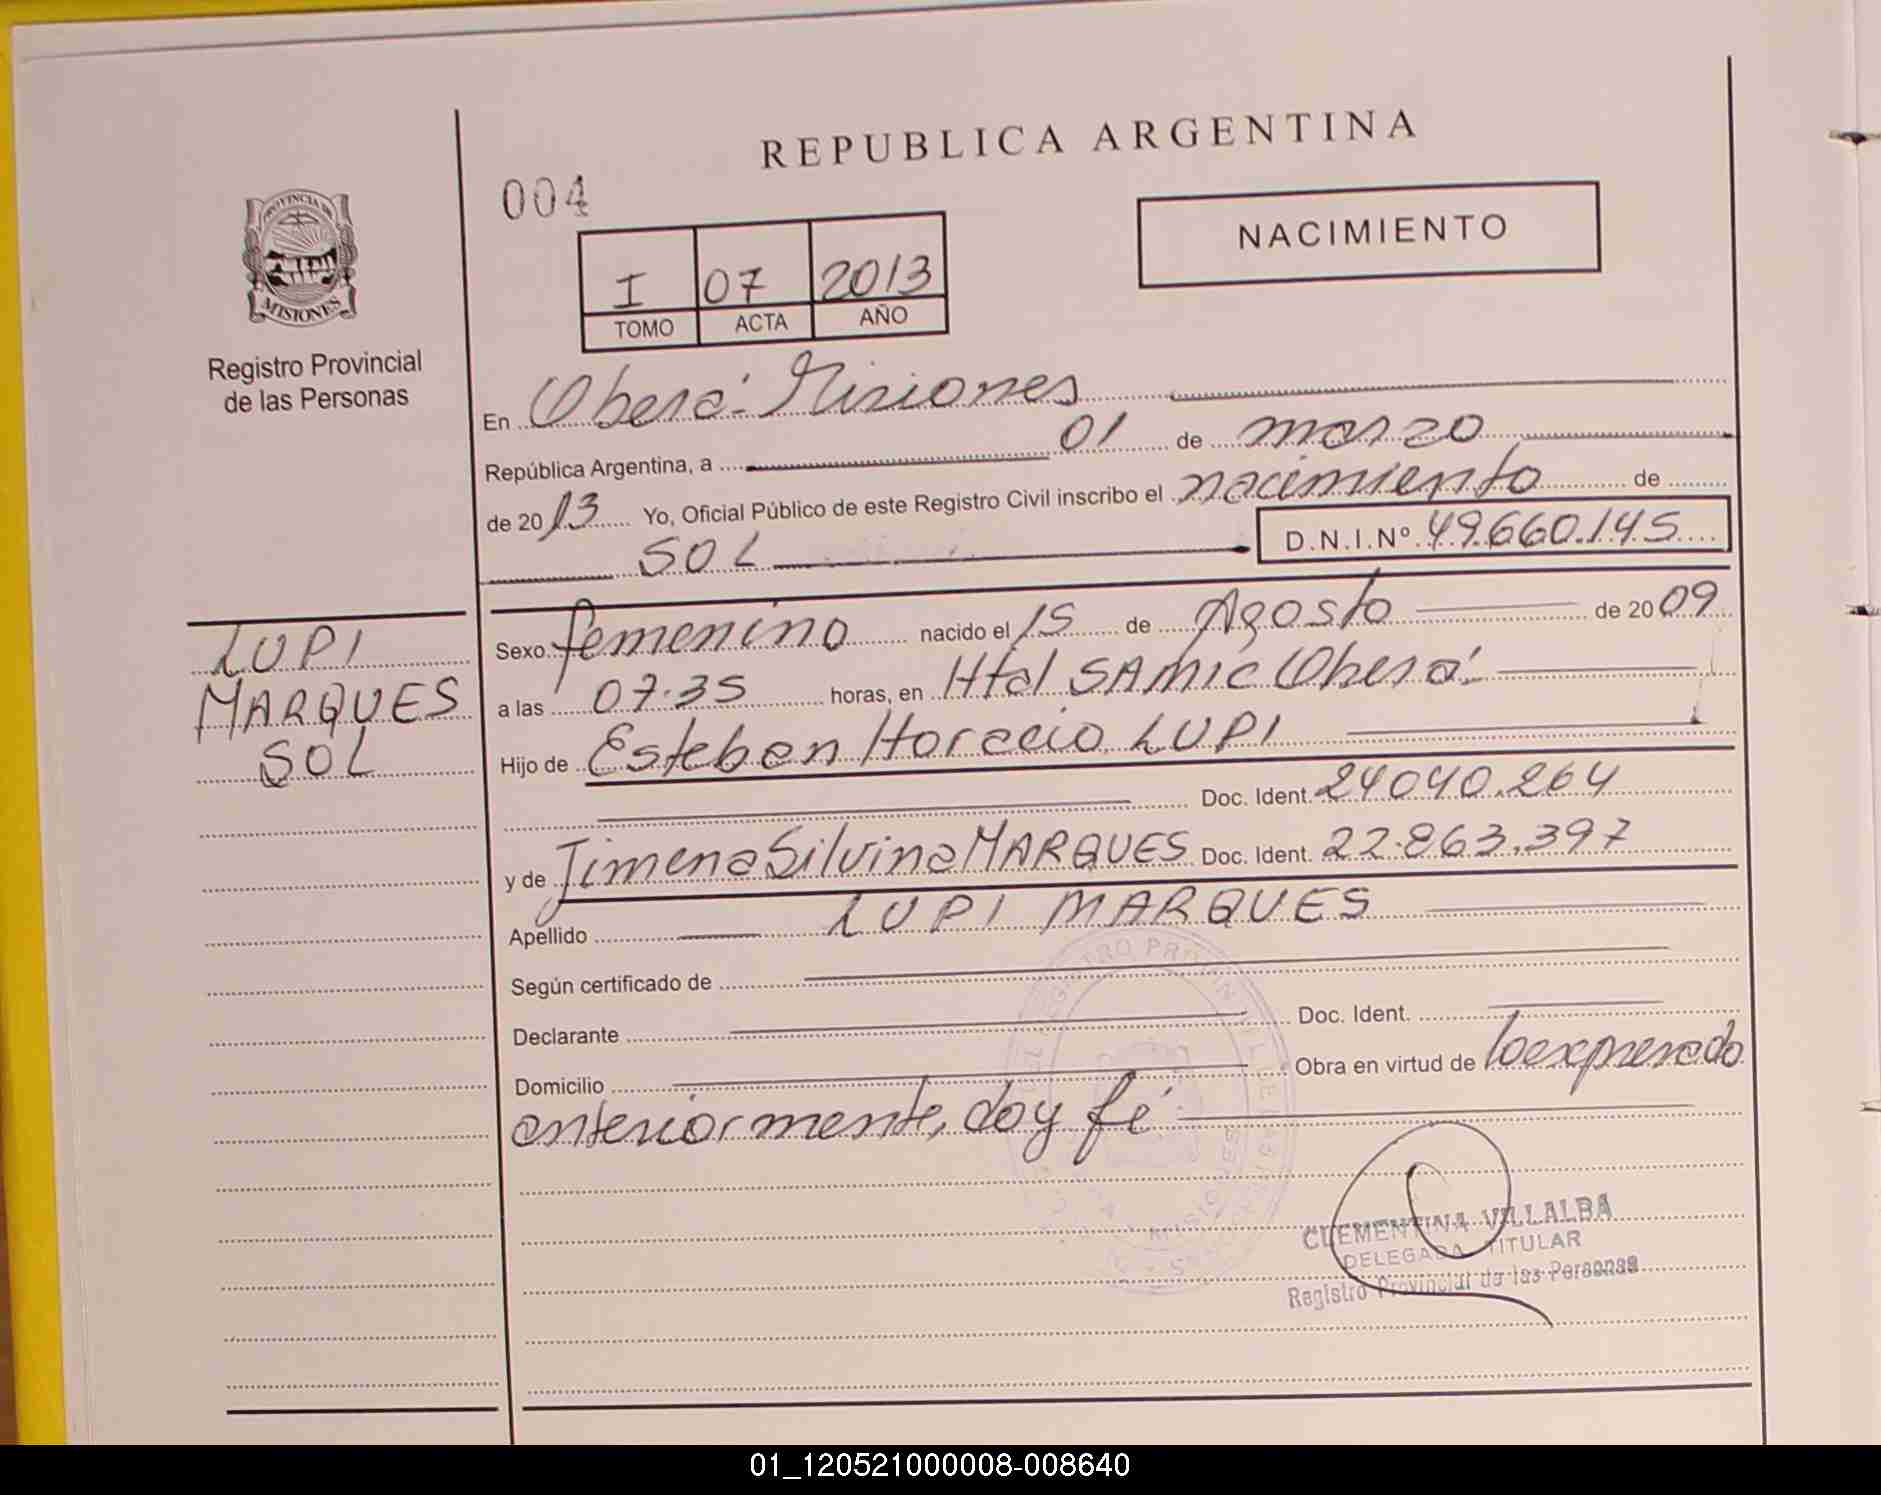 REPUBLICA ARGENTINA
004
NACIMIENTO
PROVINCIA DE
MISIONES
I 07 2013
TOMO ACTA AÑO
Registro Provincial
de las Personas
En Oberá - Misiones
República Argentina, a 01 de marzo
de 2013 Yo, Oficial Público de este Registro Civil inscribo el nacimiento de
SOL D.N.I.Nº 49.660.145
LUPI
MARQUES
SOL
Sexo femenino nacido el 15 de Agosto de 2009
a las 07.35 horas, en Htal SAMIC Oberá
Hijo de Esteban Horacio LUPI
Doc. Ident. 24040.264
y de Jimena Silvina MARQUES Doc. Ident. 22.863.397
Apellido LUPI MARQUES
Según certificado de
Declarante Doc. Ident.
Domicilio Obra en virtud de lo expresado
anteriormente, doy fé
CLEMENTINA VILLALBA
DELEGADA TITULAR
Registro Provincial de las Personas
01_120521000008-008640